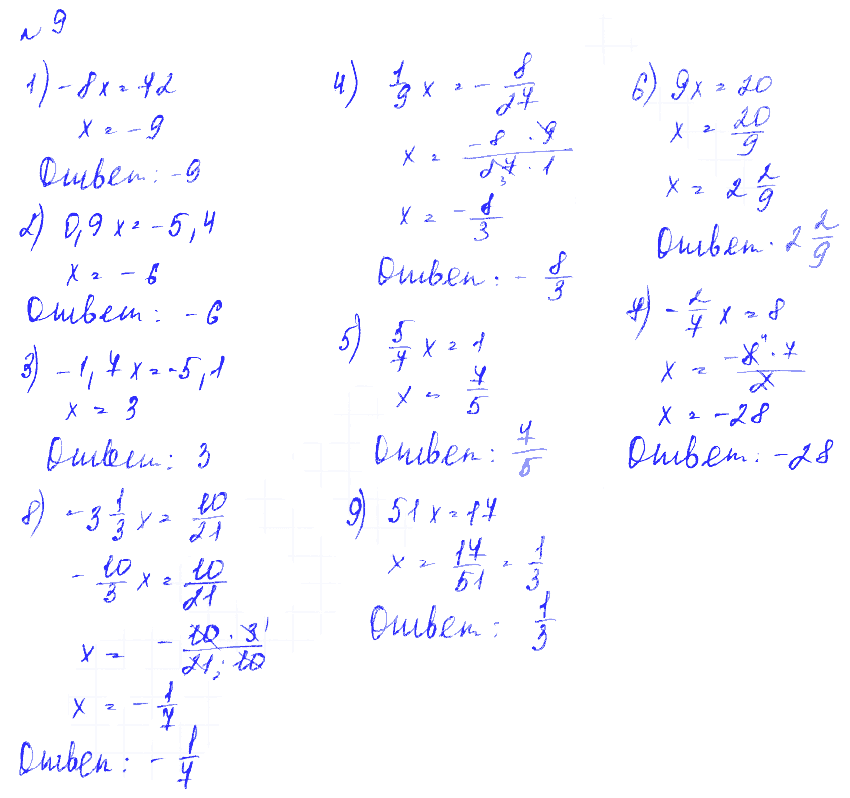 № 9
1) -8x = 72
x = -9
Ответ: -9
2) 0,9x = -5,4
x = -6
Ответ: -6
3) -1,7x = -5,1
x = 3
Ответ: 3
8) -3 1/3 x = 10/21
-10/3 x = 10/21
x = - 10 · 3 1 / 21 7 · 10
x = - 1/7
Ответ: - 1/7
4) 1/9 x = - 8/27
x = -8 · 9 / 27 3 · 1
x = - 8/3
Ответ: - 8/3
5) 5/7 x = 1
x = 7/5
Ответ: 7/5
9) 51x = 17
x = 17/51 = 1/3
Ответ: 1/3
6) 9x = 20
x = 20/9
x = 2 2/9
Ответ: 2 2/9
7) - 2/7 x = 8
x = -8 4 · 7 / 2
x = -28
Ответ: -28